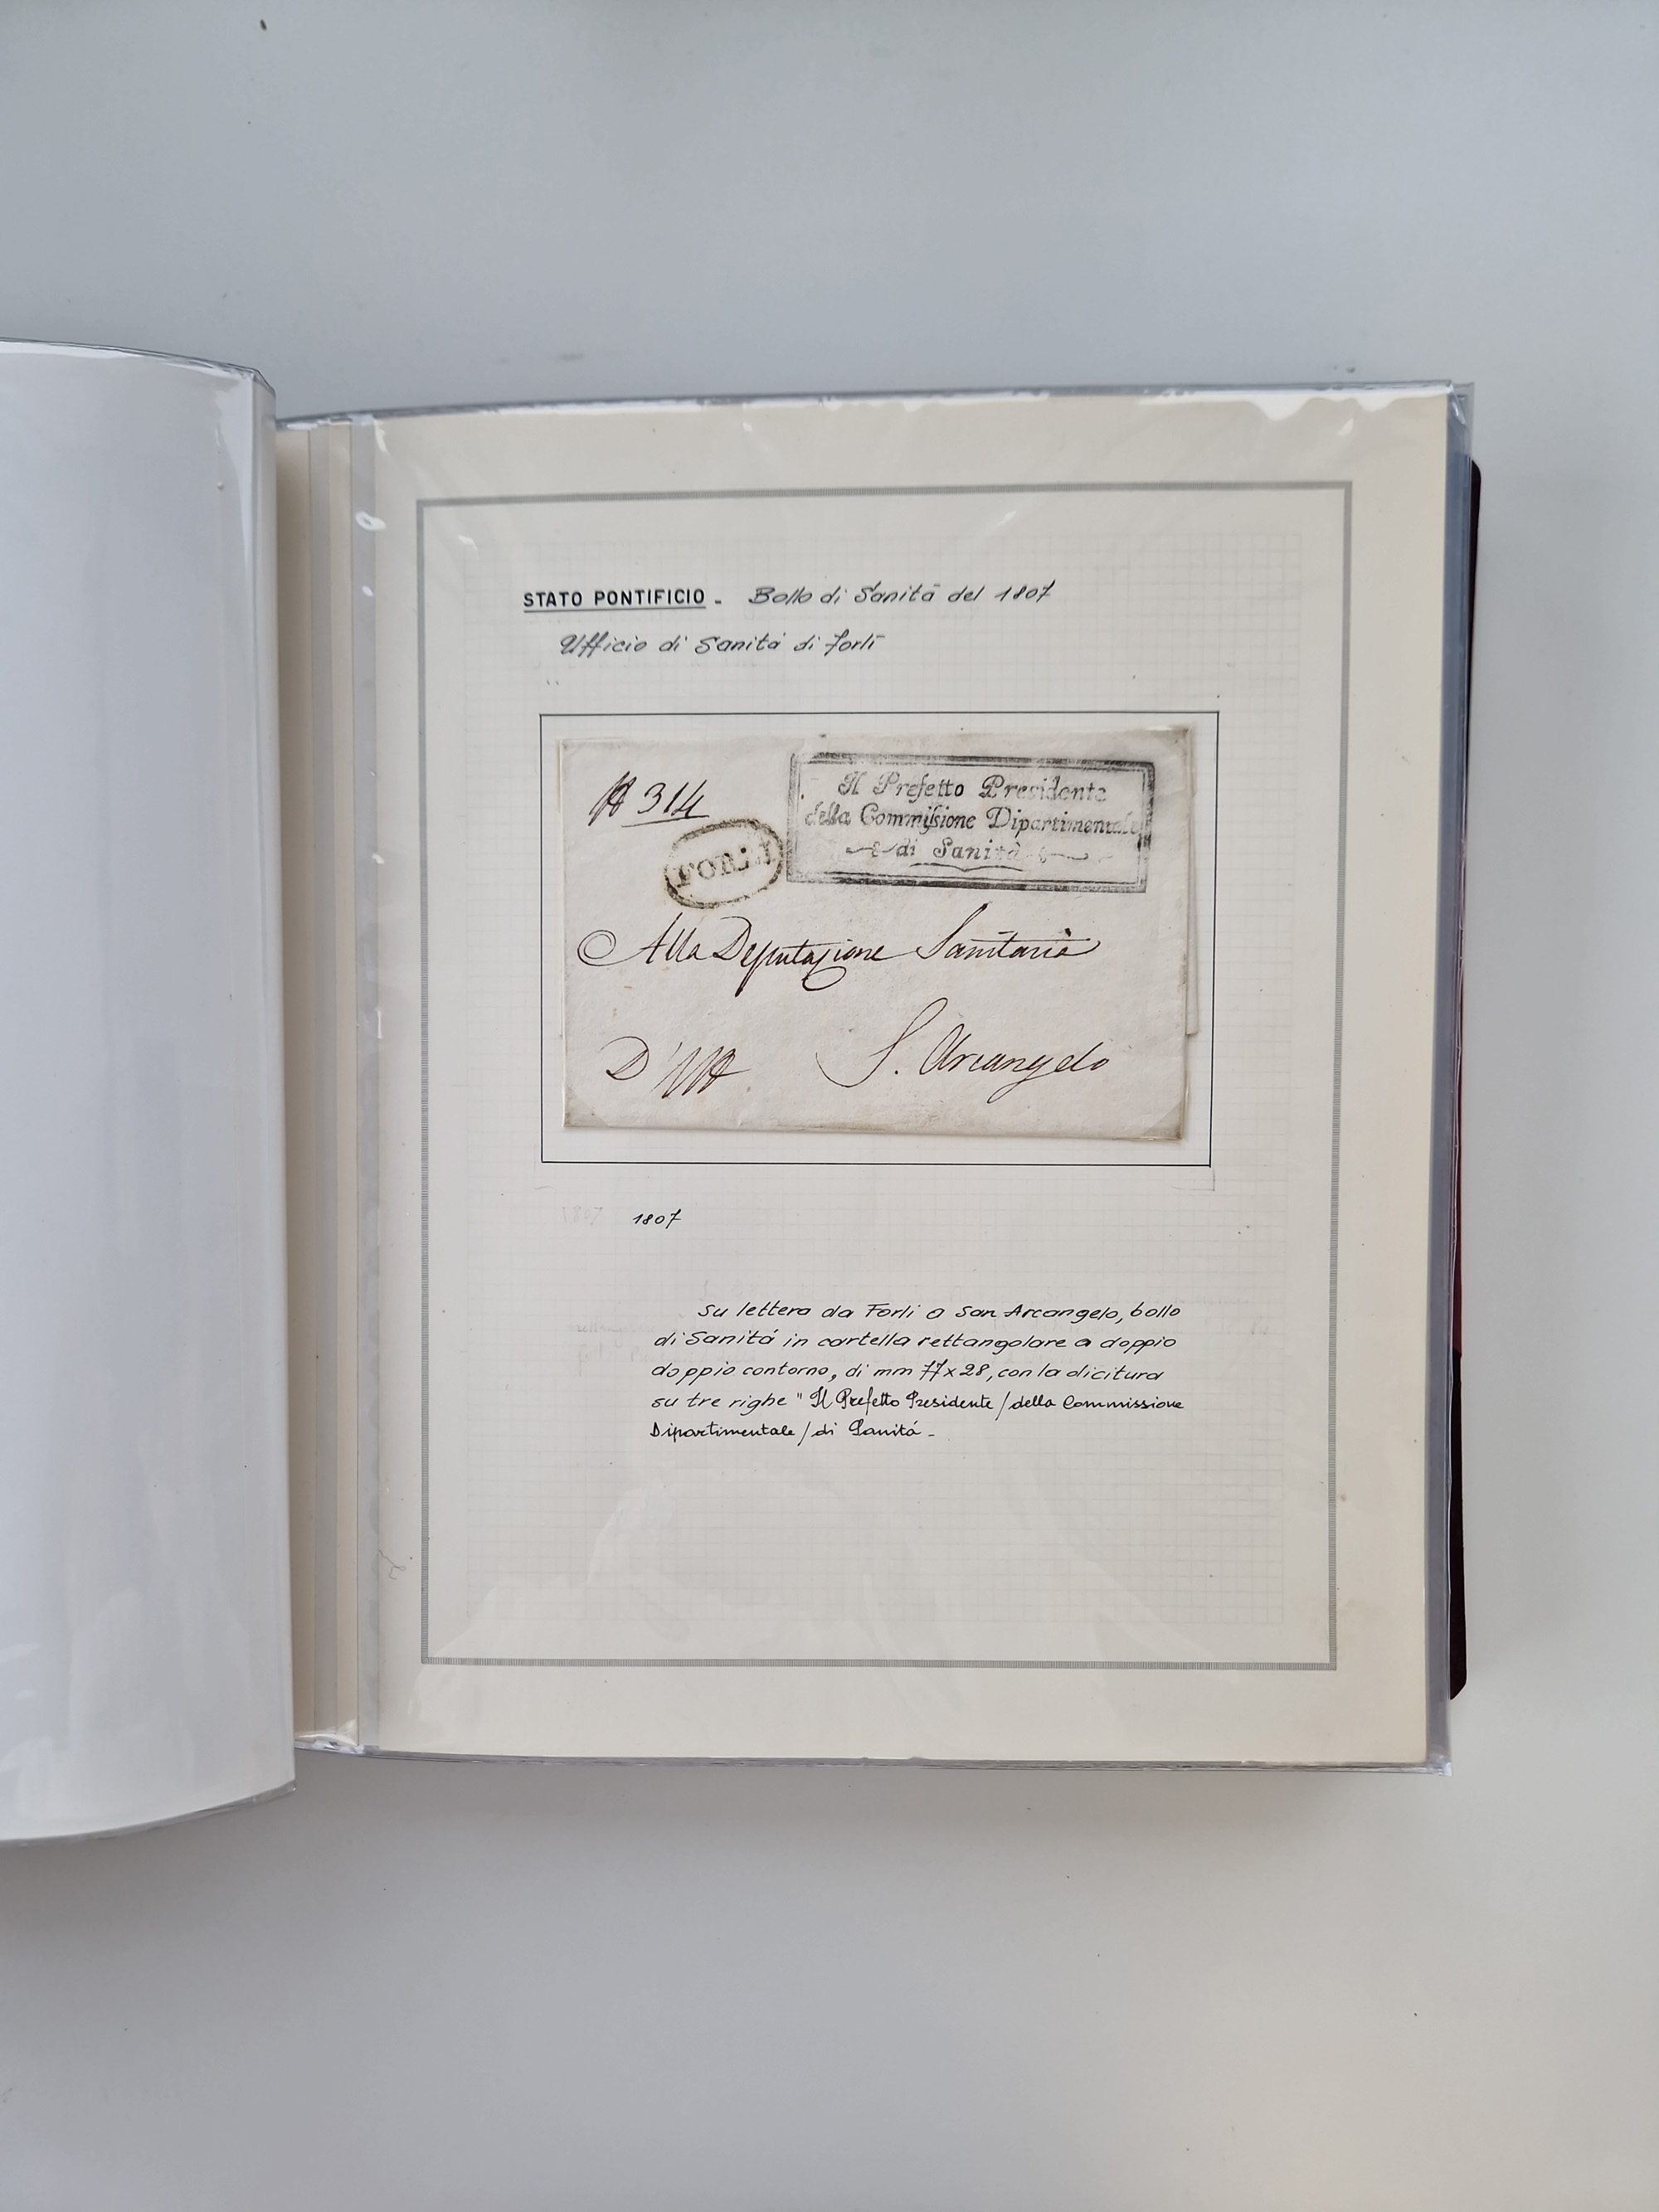 STATO PONTIFICIO - Bollo di Sanità del 1807
Ufficio di Sanità di Forlì
N 314
FORLI
Il Prefetto Presidente
della Commissione Dipartimentale
di Sanità
Alla Deputazione Sanitaria
S. Arcangelo
1807
Su lettera da Forlì a San Arcangelo, bollo
di Sanitá in cartella rettangolare a doppio
doppio contorno, di mm 77x28, con la dicitura
su tre righe "Il Prefetto Presidente/della Commissione
Dipartimentale/di Sanitá -